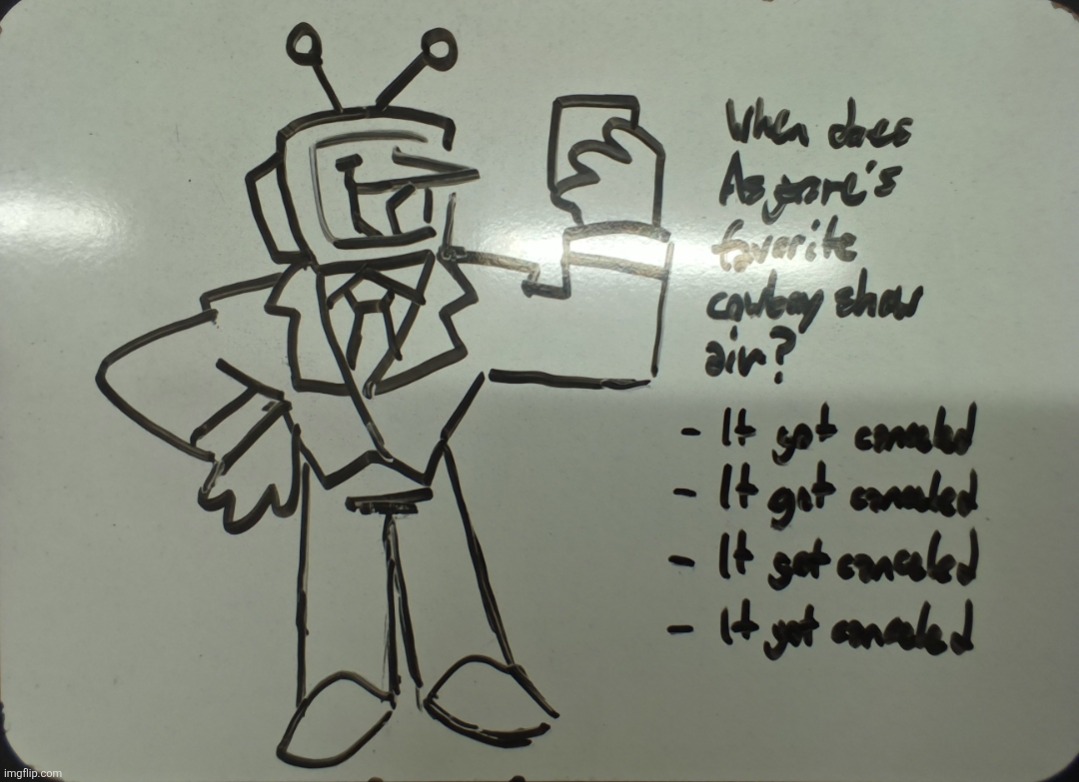 When does
Asgore's
favorite
cowboy show
air?
- It got canceled
- It got canceled
- It got canceled
- It got canceled
imgflip.com